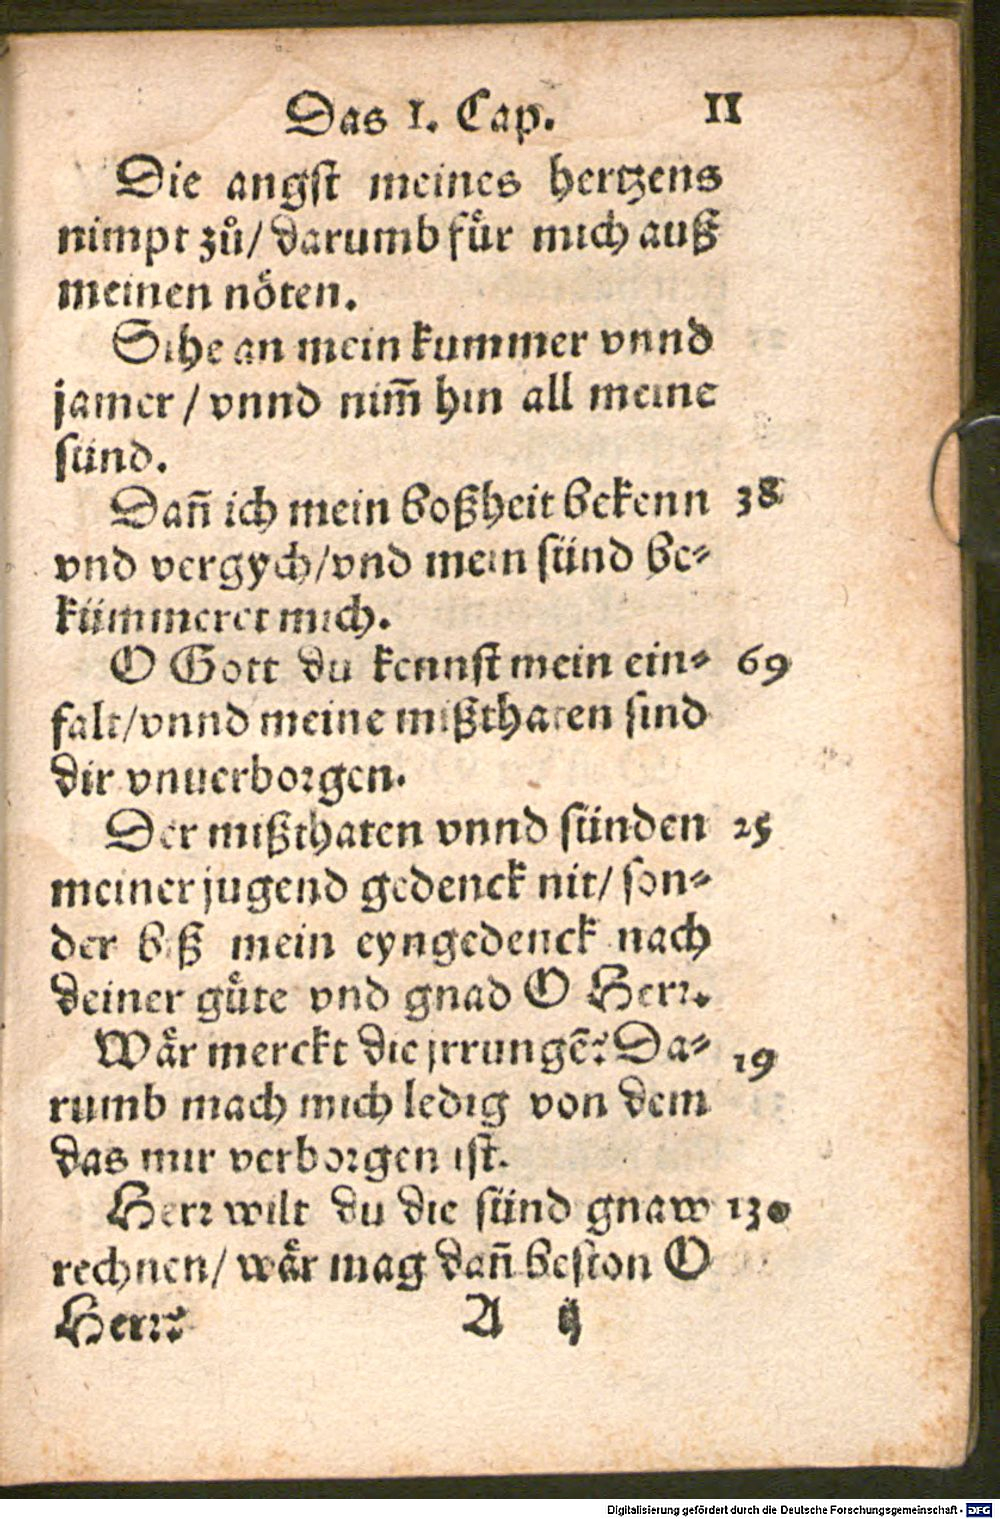 Das 1. Cap. II
Die angst meines hertzens
nimpt zů/ darumb fuͤr mich auß
meinen noͤten.
Sihe an mein kummer vnnd
jamer / vnnd nim̃ hin all meine
sünd.
Dañ ich mein boßheit bekenn 38
vnd vergych/vnd mein sünd be⸗
kümmeret mich.
O Gott du kennst mein ein⸗ 69
falt/vnnd meine mißthaten sind
dir vnuerborgen.
Der mißthaten vnnd sünden 25
meiner jugend gedenck nit/ son⸗
der biß mein eyngedenck nach
deiner guͤte vnd gnad O Herr.
Waͤr merckt die jrrungẽ? Da⸗ 19
rumb mach mich ledig von dem
das mir verborgen ist.
Herr wilt du die sünd gnaw 130
rechnen/ waͤr mag dañ beston O
Herr? A ij
Digitalisierung gefördert durch die Deutsche Forschungsgemeinschaft - DFG